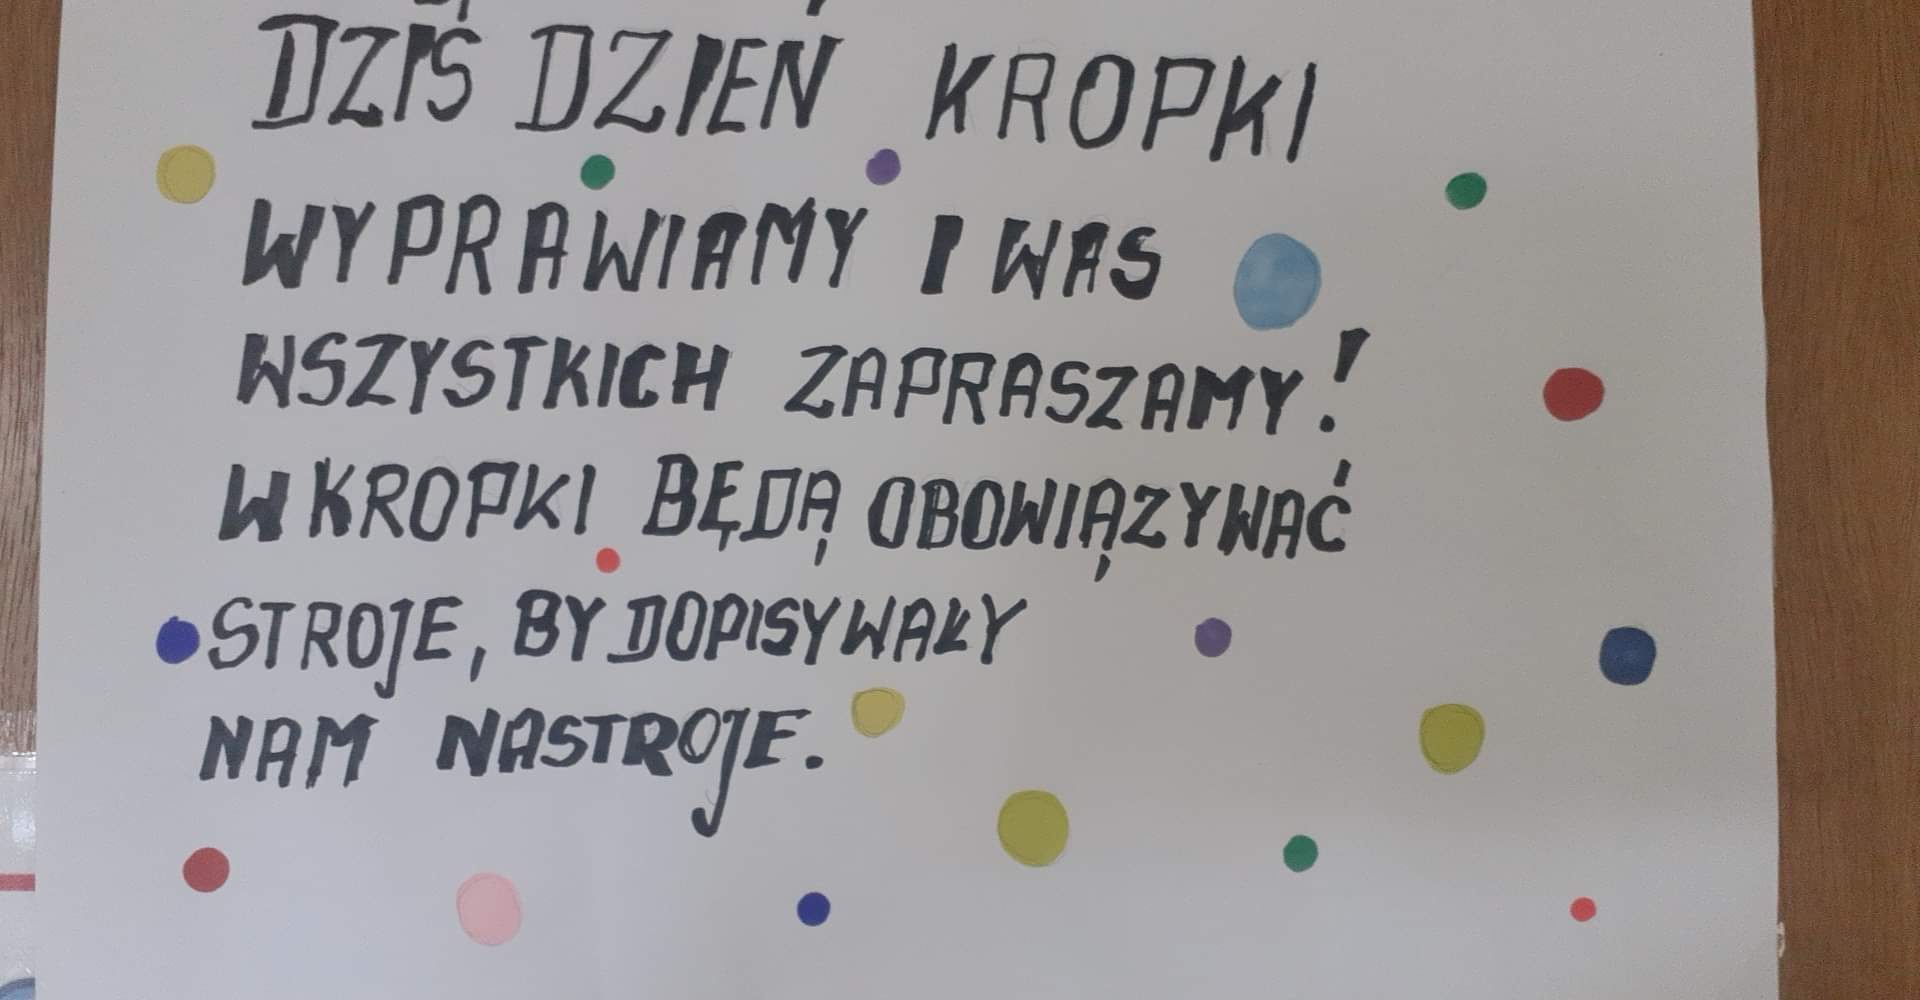 DZIŚ DZIEŃ KROPKI
WYPRAWIAMY I WAS
WSZYSTKICH ZAPRASZAMY!
W KROPKI BĘDĄ OBOWIĄZYWAĆ
STROJE, BY DOPISYWAŁY
NAM NASTROJE.